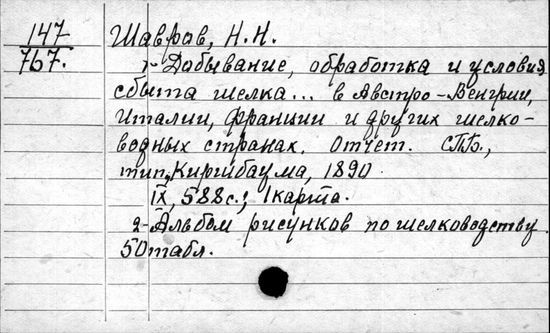 147
767.
Шавров, Н.Н.
1- Добывание, обработка и условия
сбыта шелка... в Австро-Венгрии,
Италии, Франции и других шелко-
водных странах. Отчет. СПБ.,
тип. Киршбаума, 1890.
IX, 588с.; 1карта.
2- Альбом рисунков по шелководству.
50табл.